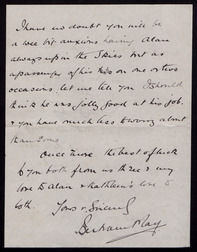 I have no doubt you will be
a wee bit anxious having Alan
always up in the Skies but as
a passenger of his on one or two
occasions let me tell you I should
think he was jolly good at his job.
& you have much less to worry about
than some
Once more the best of luck
to you both from us three & my
love to Alan & Kathleen's love to
both.
Yours v. Sincerely